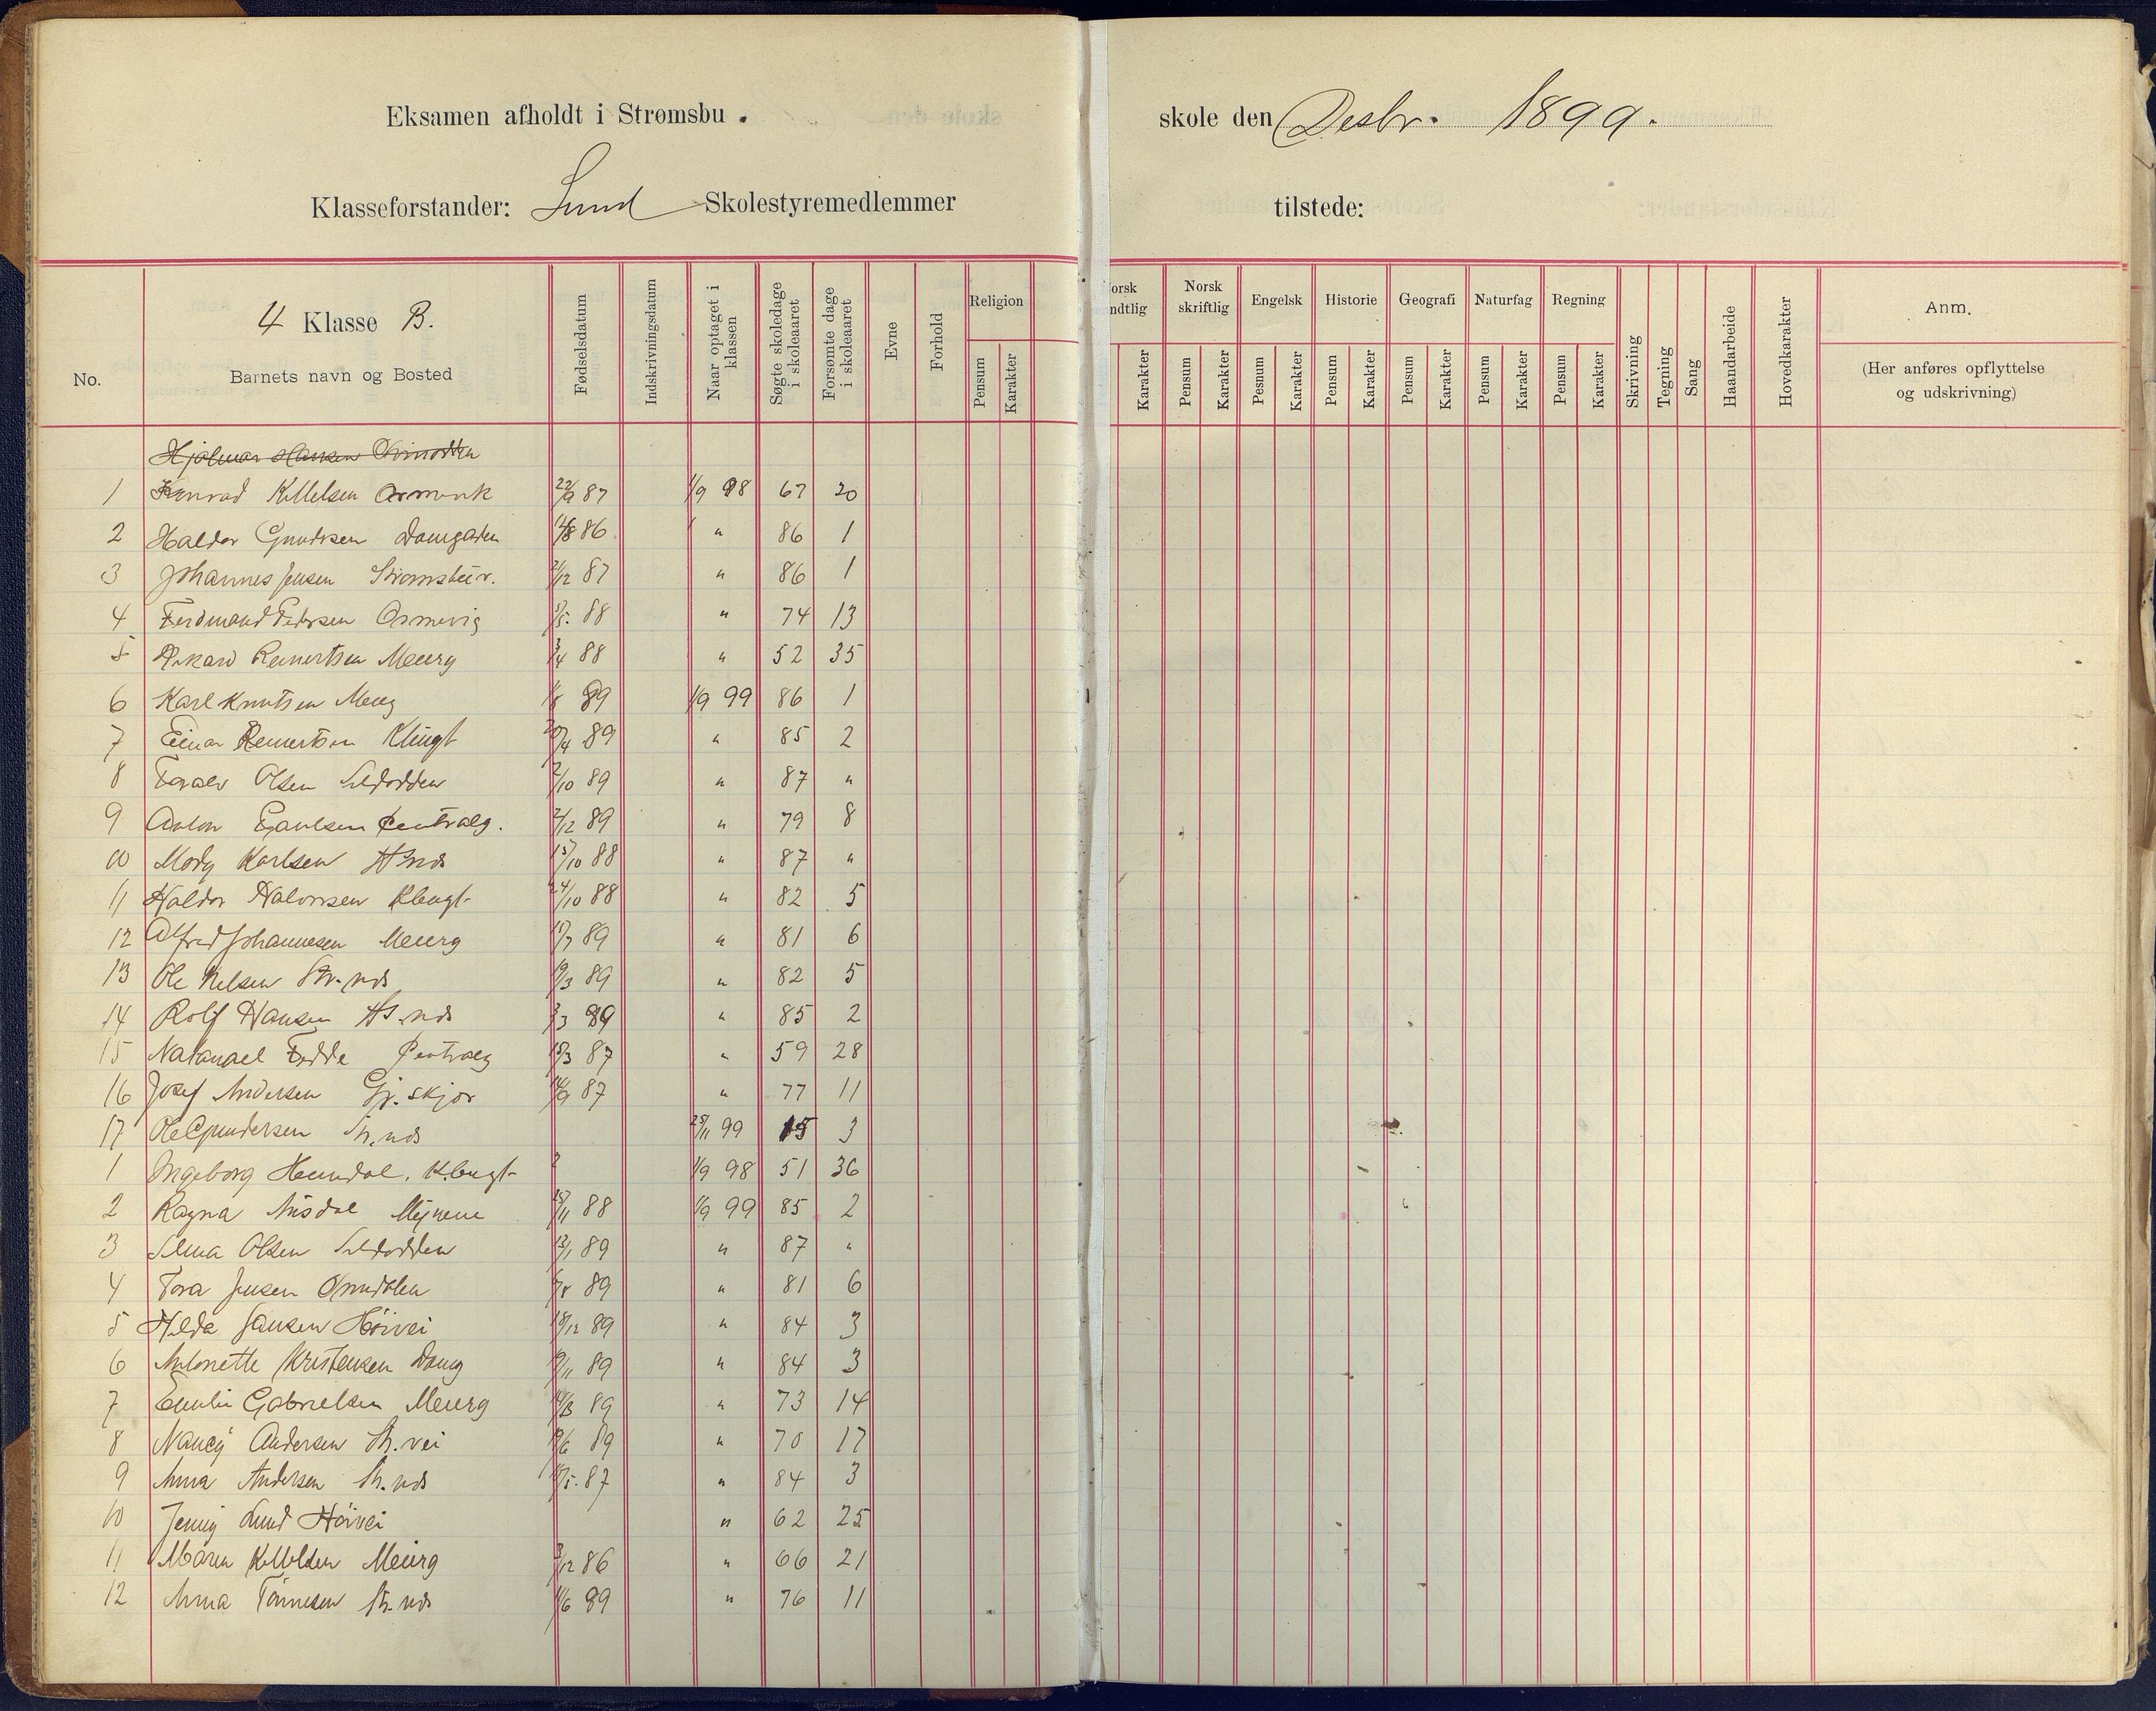 Eksamen afholdt i Strømsbu. skole den Desbr. 1899.
Klasseforstander: Lund Skolestyremedlemmer tilstede:
No.
4 Klasse B.
Barnets navn og Bosted
Fødselsdatum
Indskrivningsdatum
Naar optaget i klassen
Søgte skoledage i skoleaaret
Forsømte dage i skoleaaret
Evne
Forhold
Religion Pensum Karakter
orsk ndtlig Karakter
Norsk skriftlig Pensum Karakter
Engelsk Pesnum Karakter
Historie Pensum Karakter
Geografi Pensum Karakter
Naturfag Pensum Karakter
Regning Pensum Karakter
Skrivning
Tegning
Sang
Haandarbeide
Hovedkarakter
Anm.
(Her anføres opflyttelse og udskrivning)
Hjalmar Hansen
1 Konrad Kittelsen 22/9 87 1/9 98 67 20
2 Haldor Gundersen 86 " 86 1
3 Johannes Jensen 21/12 87 " 86 1
4 Ferdinand Pedersen Osmevig 88 " 74 13
5 Reinertsen Meierg 3/4 88 " 52 35
6 Karl Knutsen Meierg 89 1/9 99 86 1
7 Einar Reinertsen Klingt 89 " 85 2
8 Toralv Olsen Sildodden 2/10 89 " 87 "
9 Anton Paulsen Centralg. 2/12 89 " 79 8
10 Karlsen 15/10 88 " 87 "
11 Haldor Halvorsen 24/10 88 " 82 5
12 Alfred Johannesen Meierg 89 " 81 6
13 Ole Nelsen Str. nds 89 " 82 5
14 Rolf Hansen nds 3/3 89 " 85 2
15 Natanael Fedde Centralg 87 " 59 28
16 Josef Andersen Gj. skjær 14/9 87 " 77 11
17 Ole Gundersen Str. nds 25/11 99 15 3
1 Ingeborg Heimdal. 1/9 98 51 36
2 Ragna Myrene 15/11 88 1/9 99 85 2
3 Olsen Sildodden 13/1 89 " 87 "
4 Tora Jensen 89 " 81 6
5 Hilda Jansen Höivei 18/12 89 " 84 3
6 Antonette Kristensen Damg 89 " 84 3
7 Emilie Gabrielsen Meierg 89 " 73 14
8 Nancy Andersen Str. vei 89 " 70 17
9 Anna Andersen Str. nds 87 " 84 3
10 Jenny Lund Höivei " 62 25
11 Maren Kittelsen Meierg 3/12 86 " 66 21
12 Anna Tönnesen Str. nds 89 " 76 11